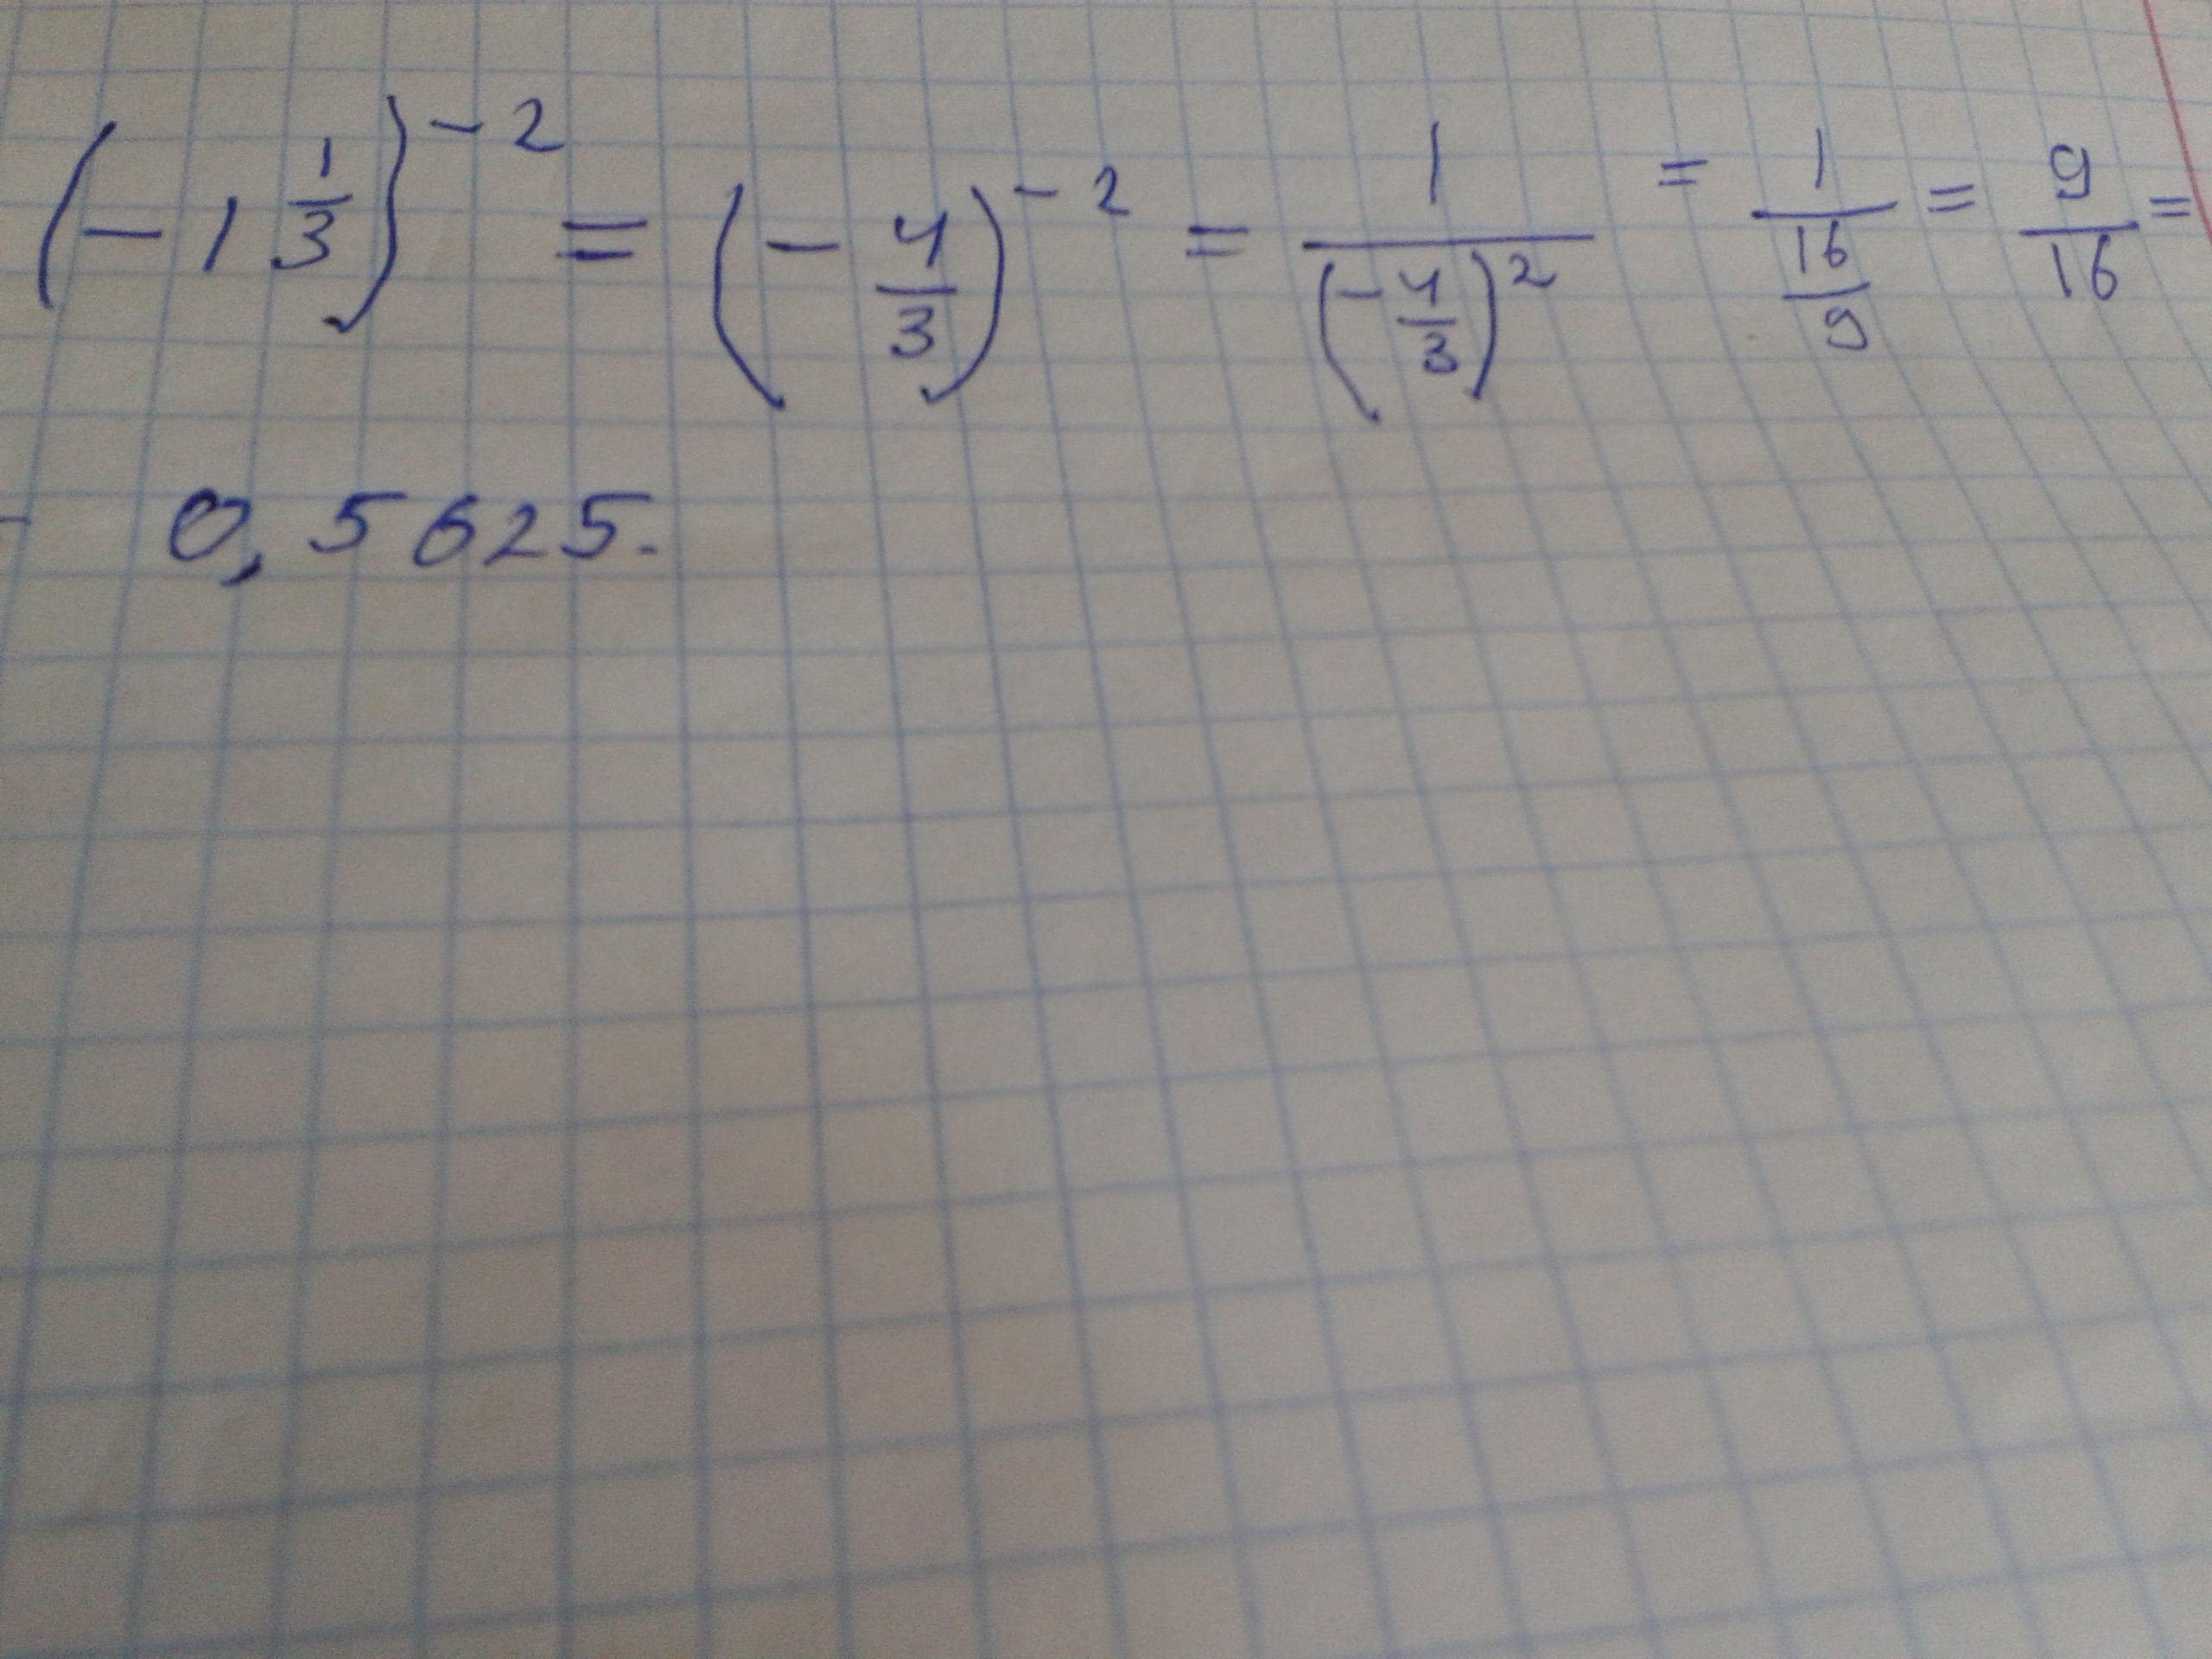 (-1 1/3)^-2 = (-4/3)^-2 = 1/(-4/3)^2 = 1/(16/9) = 9/16 =
0,5625.